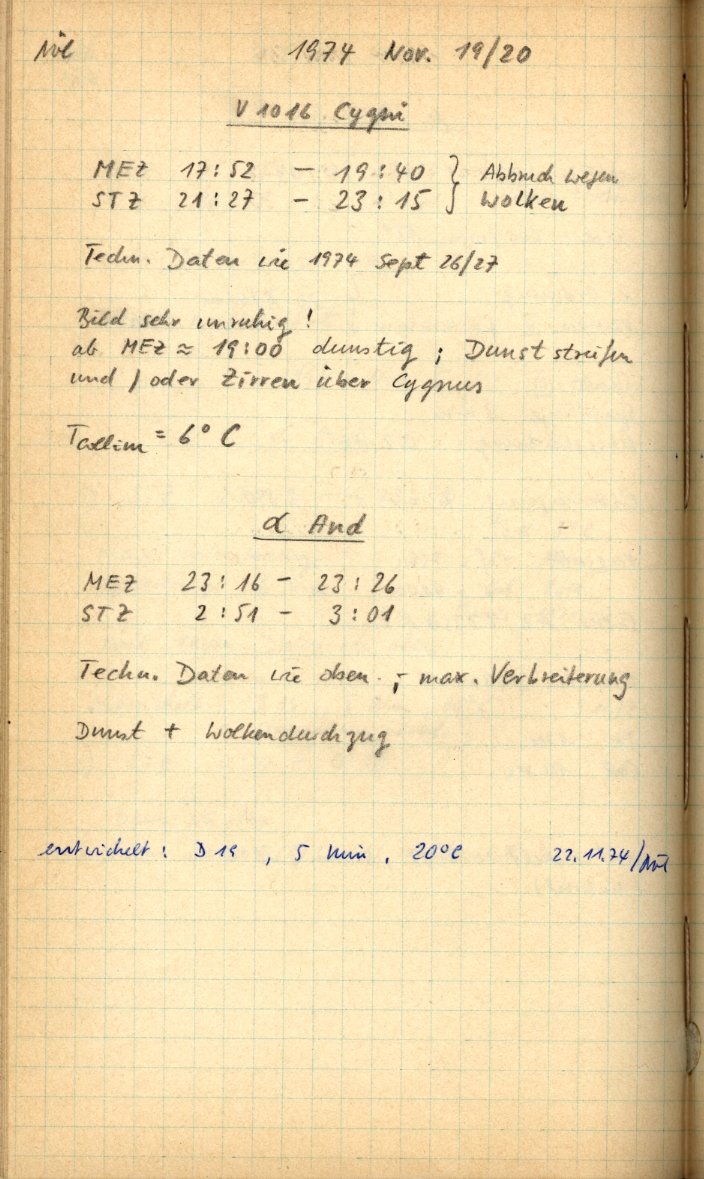 1974 Nov. 19/20
V 1016 Cygni
MEZ 17:52 – 19:40 } Abbruch wegen
STZ 21:27 – 23:15 } Wolken
Techn. Daten wie 1974 Sept 26/27
Bild sehr unruhig!
ab MEZ ≈ 19:00 dunstig; Dunststreifen
und/oder Zirren über Cygnus
= 6°C
α And
MEZ 23:16 – 23:26
STZ 2:51 – 3:01
Techn. Daten wie oben.; max. Verbreiterung
Dunst + Wolkendurchzug
entwickelt: D19, 5 min, 20°C 22.11.74/